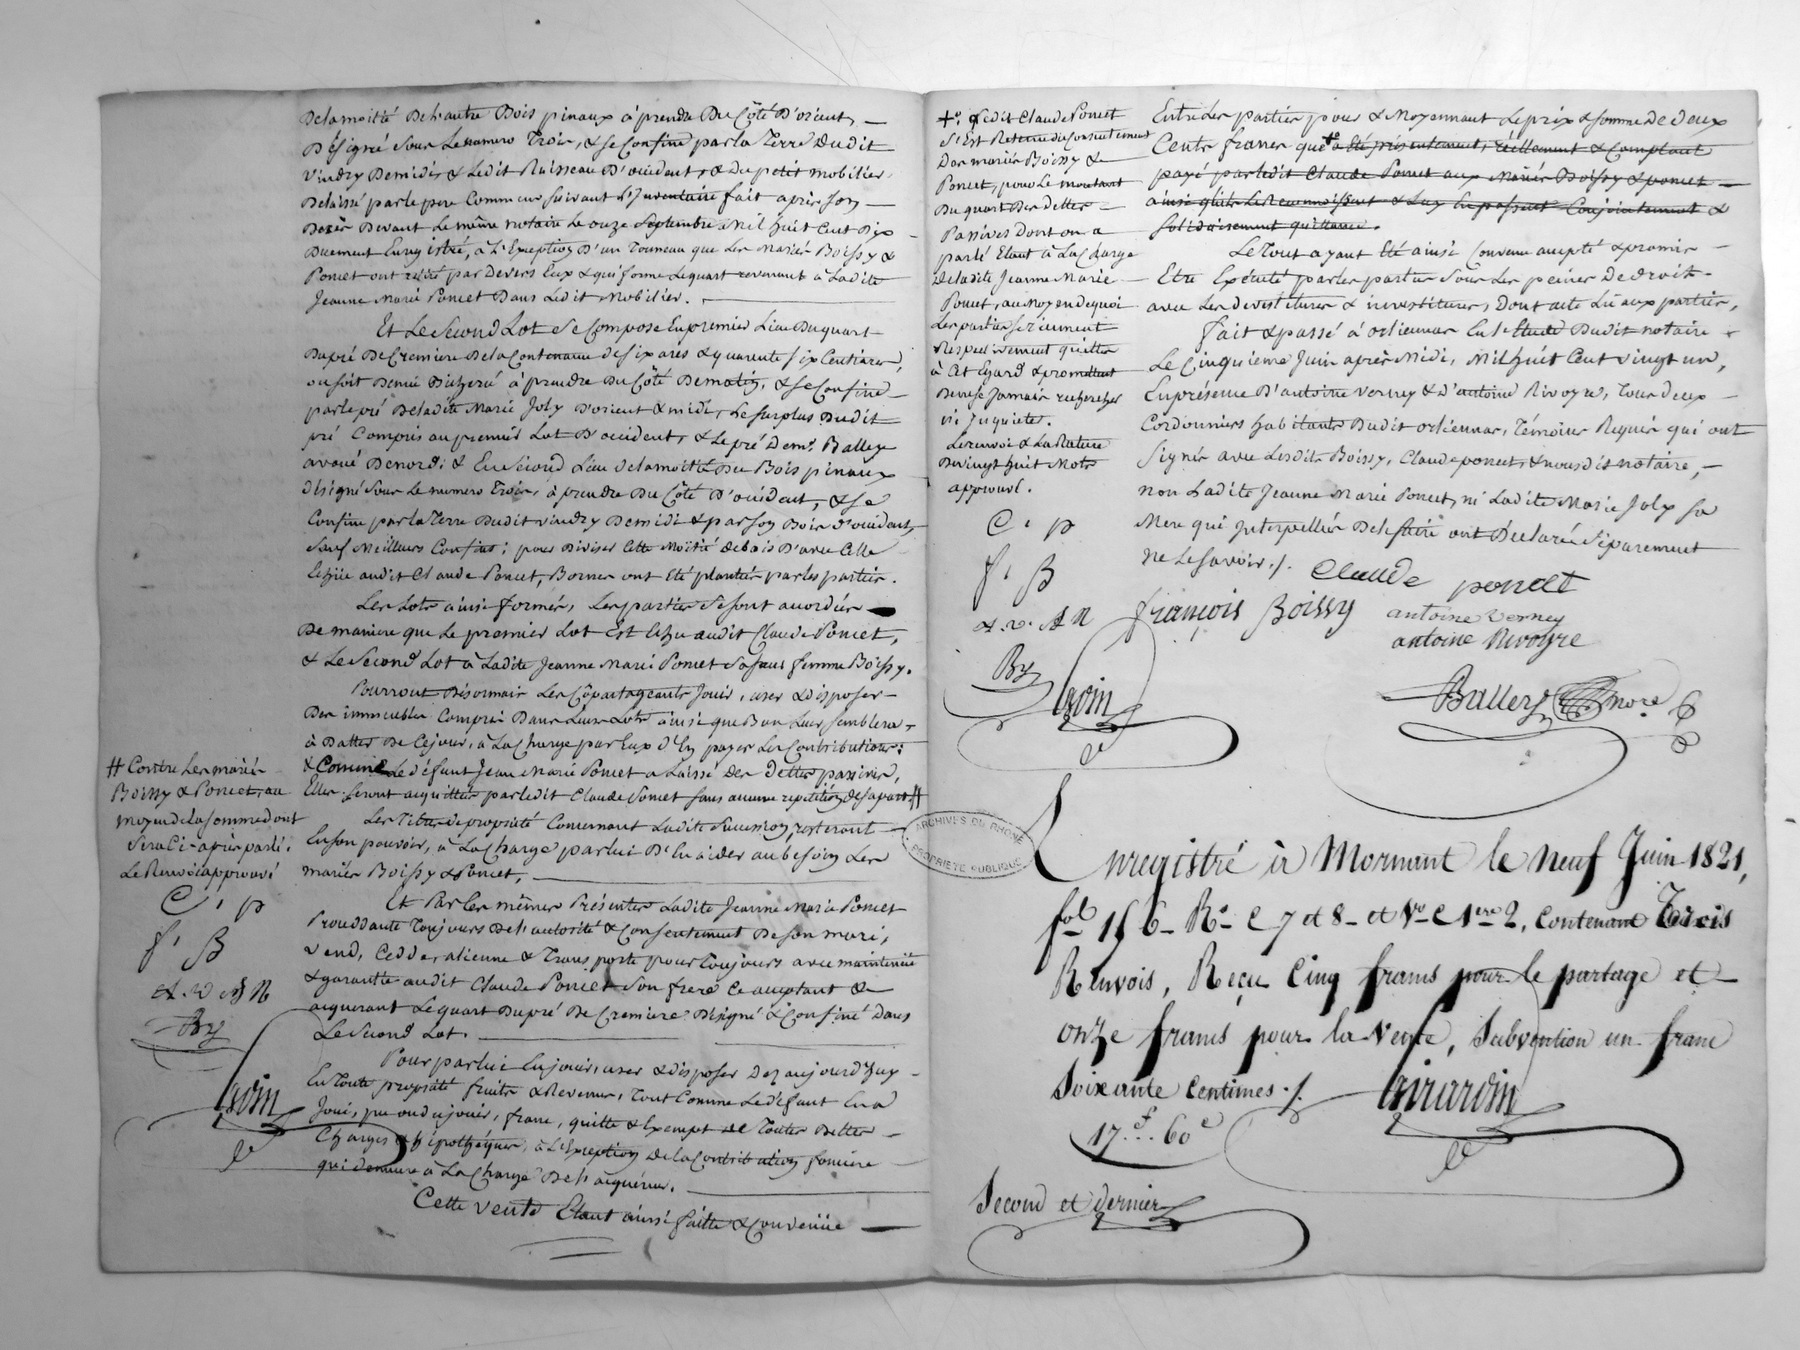 De la moitié De l'autre Bois pinaux à prendre Du Côté D'orient, —
Désigné Sous Le numero Trois, & se Confine par la Terre Dudit
Vindry De midi, & Ledit Ruisseau D'occident, & Du petit mobilier
Delaissé par le pere Commun suivant L'Inventaire fait après son —
Décès Devant Le même notaire Le onze Septembre Mil huit Cent Dix
Duement Enregistré, à L'Exception D'un Tonneau que Les Mariés Boissy &
Poncet ont retiré par Devers Eux & qui forme Le quart revenant à Ladite
Jeanne Marie Poncet Dans Ledit Mobilier.
Et Le Second Lot Se Compose En premier Lieu Du quart
Du pré De Cremiere De la Contenance de six ares & quarante six Centiares,
ou soit Demie Bicherée à prendre Du Côté De matin, & se Confine
par le pré De ladite Marie Joly D'orient & midi, Le surplus Dudit
pré Compris au premier Lot D'occident, & Le pré De Mr. Balley
avoué De nord; & En Second Lieu De la moitié Du Bois pinaux
désigné Sous Le numero Trois, à prendre Du Côté D'occident, & se
Confine par la Terre Dudit Vindry De midi & par son Bois d'occident,
sauf Meilleurs Confins; pour Diviser Cette Moitié de bois D'avec Celle
Echüe audit Claude Poncet, Bornes ont Eté plantées par les parties.
Les Lots ainsi formés, Les parties se sont accordées
De maniere que Le premier Lot Est Echu audit Claude Poncet,
& Le Second Lot à Ladite Jeanne Marie Poncet Sa sœur femme Boissy.
Pourront Désormais Les Copartageants Jouir, user & disposer
Des immeubles Compris Dans Leurs Lots ainsi que Bon Leur semblera
à Datter De Ce jour, à La Charge par Eux d'En payer Les Contributions;
& Comme Le défunt Jean Marie Poncet a Laissé Des Dettes passives,
Elles seront acquittées par ledit Claude Poncet sans aucune répétition de sa part #
# Contre Les mariés
Boissy & Poncet, au
moyen de la somme dont
Sera Ci-après parlé.
Le Renvoi approuvé
C. p
f. B
A. V A R
By
Les Titres de propriété Concernant Ladite Succession, resteront
En son pouvoir, à La Charge par lui D'En aider au besoin Les
mariés Boissy & Poncet.
Et Par Les mêmes Présentes Ladite Jeanne Marie Poncet
Procédante Toujours De l'autorité & Consentement De son mari,
Vend, Cedde, aliene & Transporte pour Toujours avec maintenüe
& garantie audit Claude Poncet Son frere Ce acceptant &
acquerant Le quart Du pré De Cremiere Désigné & Confiné Dans
Le Second Lot.
Pour par lui En jouir, user & disposer Dez aujourd'huy
En Toute propriété fruits & Revenus, Tout Comme Le défunt En a
Joui, pu ou dû jouir, franc, quitte & Exempt de Toutes Dettes
Charges & hipothéques, à L'Exception De la Contribution fonciere
qui demeure à La Charge De l'acquéreur.
Cette vente Etant ainsi faitte & Convenüe
+o. Ledit Claude Poncet
S'Est Retenu du Consentement
Des mariés Boissy &
Poncet, pour Le montant
Du quart Des Dettes
Passives Dont on a
parlé Etant à La Charge
De ladite Jeanne Marie
Poncet, au Moyen de quoi
Les parties se tiennent
Respectivement quittes
à Cet Egard & promettent
De ne se Jamais rechercher
ni Inquieter.
Le renvoi & La Rature
De vingt huit Mots
approuvé.
C. p
f. B
A. V. A R
By
Entre Les parties pour & Moyennant Le prix & somme De Deux
Cents francs que +o a été présentement, réellement & Comptant
payé par ledit Claude Poncet aux Mariés Boissy & poncet
ainsi qu'ils Le Reconnoissent & L'en passent Conjointement &
Solidairement quittance.
Le Tout ayant Eté ainsi Convenu accepté & promis
Etre Exécuté par les parties Sous Les peines De Droit
avec Les Devestitures & investitures, Dont acte Lu aux parties,
fait & passé à orlienas En l'Etude Dudit notaire
Le Cinquieme Juin après Midi, Mil huit Cent vingt un,
En présence D'antoine Verney & d'antoine Rivoyre, Tous deux
Cordonniers habitants Dudit orlienas, Témoins Requis qui ont
Signé avec Lesdits Boissy, Claude poncet, & nousdit notaire,
non Ladite Jeanne Marie Poncet, ni Ladite Marie Joly sa
Mere qui Interpellées De le faire ont Déclaré Séparement
ne Le savoir ./.
Claude poncet
françois Boissy
antoine verney
antoine Rivoyre
Balley nore
Enregistré à Mornant le neuf Juin 1821,
fol 156 Ro C 7 et 8 et Vo C 1ere 2, Contenant Trois
Renvois, Reçu Cinq francs pour le partage et
onze francs pour la Vente, Subvention un franc
Soixante Centimes ./. Girardin
17 f. 60 c
Second et dernier
ARCHIVES DU RHONE
PROPRIETE PUBLIQUE